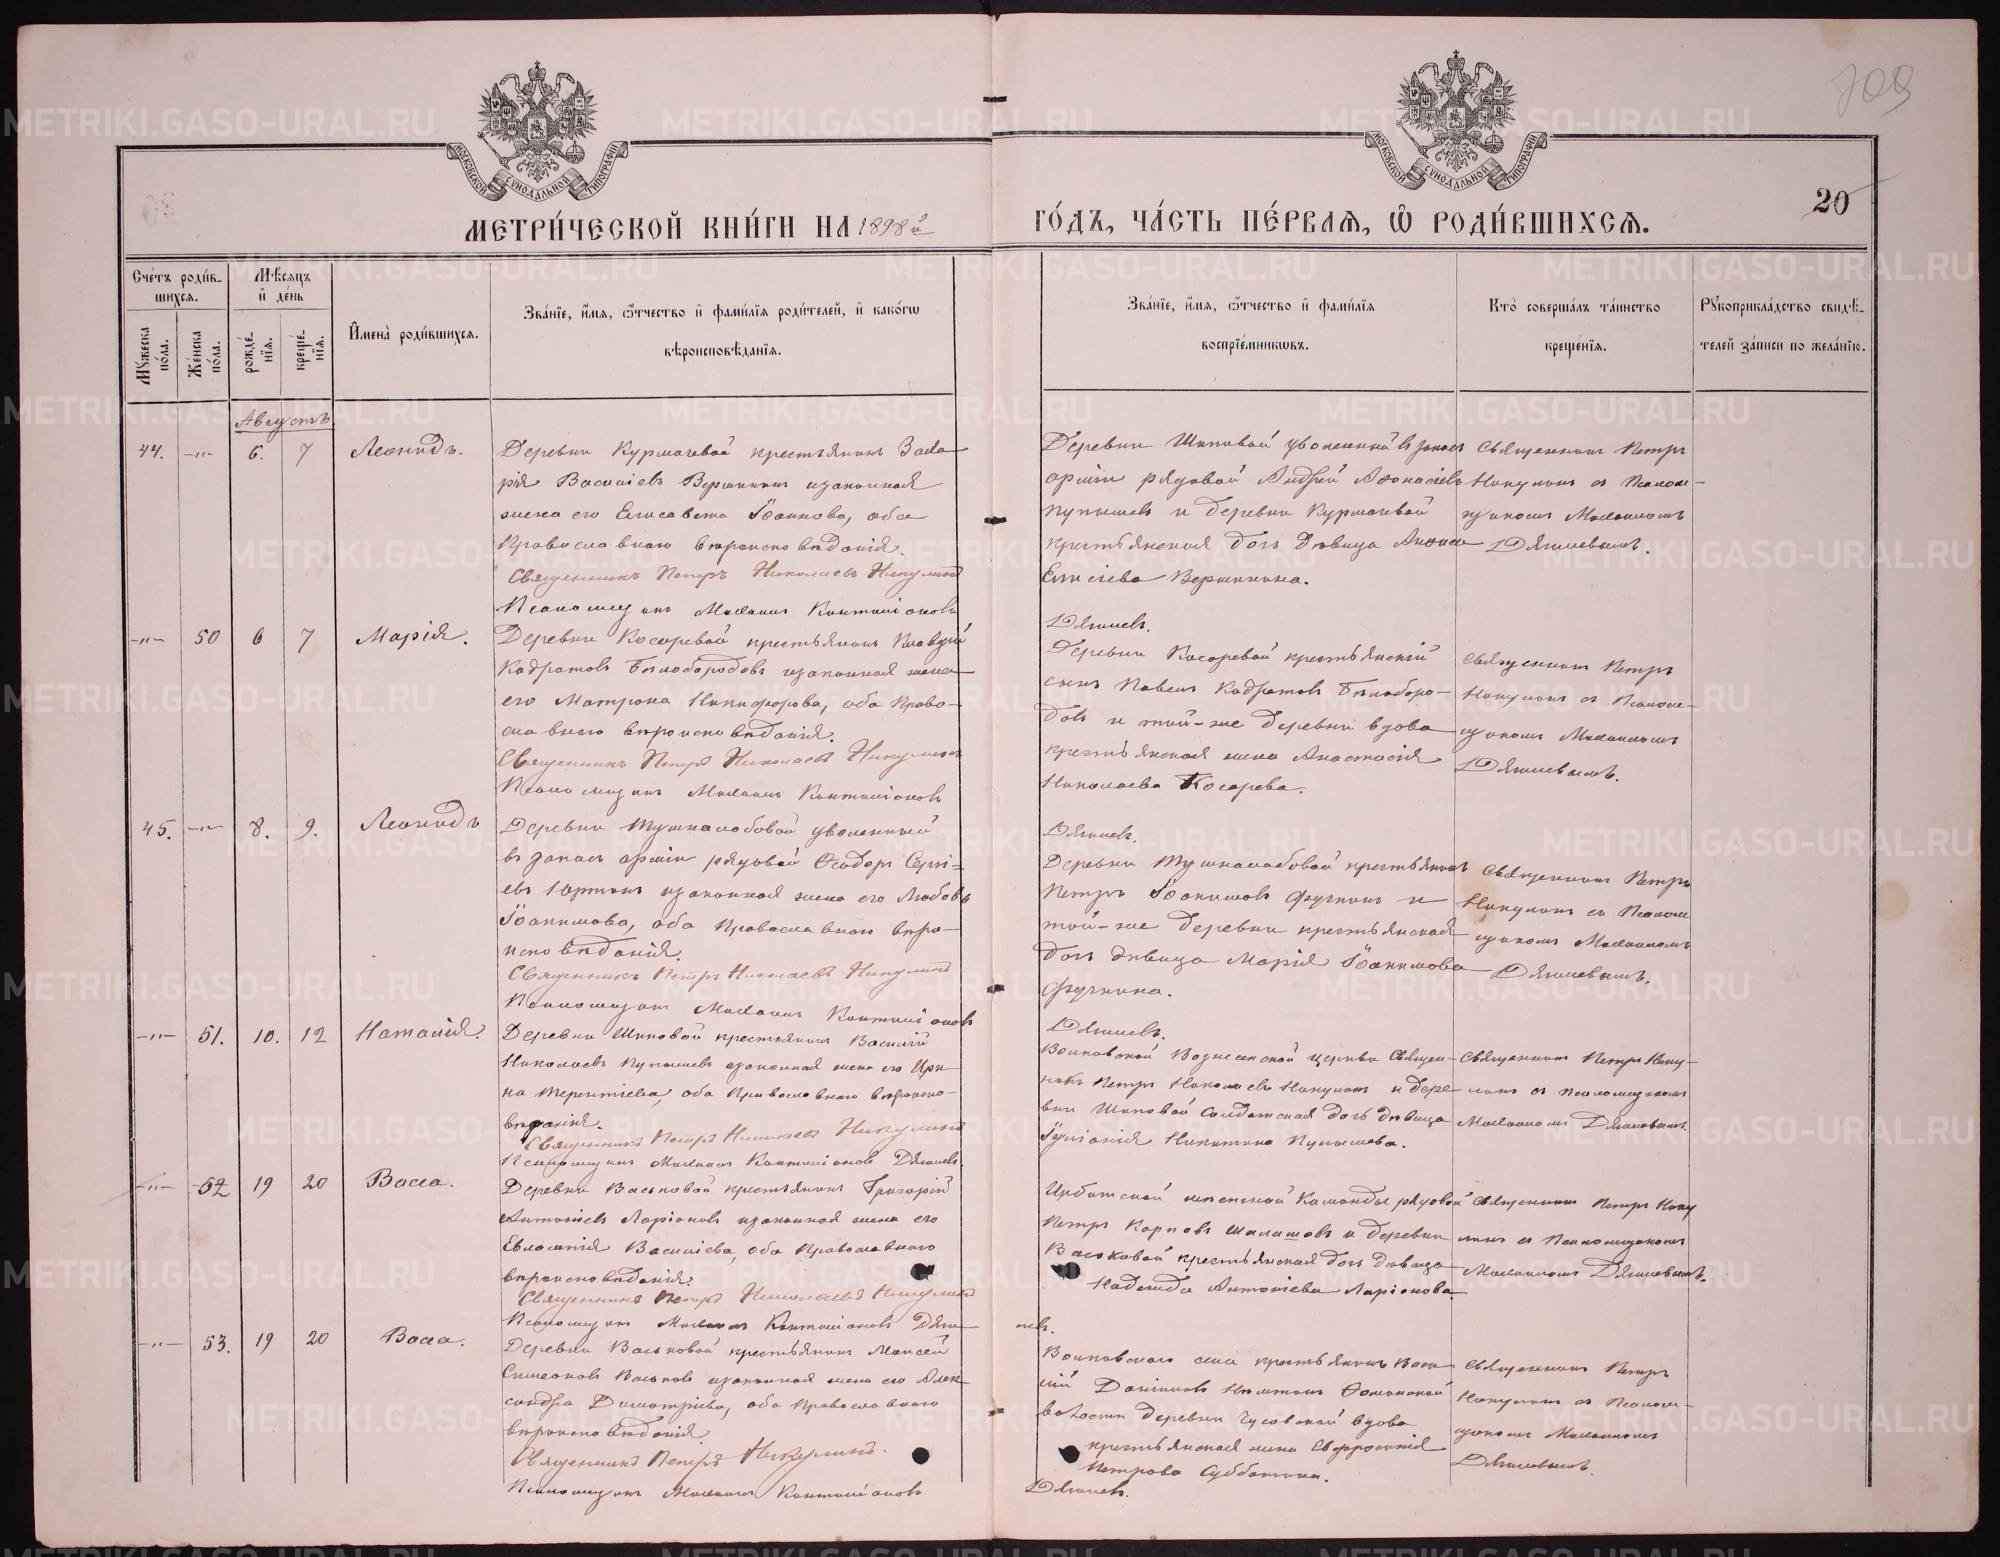 709
20
МОСКОВСКОЙ СѴНОДАЛЬНОЙ ТИПОГРАФІИ
МОСКОВСКОЙ СѴНОДАЛЬНОЙ ТИПОГРАФІИ
МЕТРИ́ЧЕСКОЙ КНИ́ГИ НА 1898й ГО́ДЪ, ЧА́СТЬ ПЕ́РВАЯ, Ѽ РОДИ́ВШИХСЯ.
Сче́тъ роди́вшихся.
Мѣ́сяцъ и де́нь
Мꙋ́жеска по́ла.
Же́нска по́ла.
рожде́нїя.
креще́нїя.
И҆мена̀ роди́вшихся.
Зва́нїе, и҆́мя, ѻ҆́тчество и҆ фами́лїя роди́телей, и҆ како́гѡ вѣроисповѣ́данїя.
Зва́нїе, и҆́мя, ѻ҆́тчество и҆ фами́лїя воспрїе́мникѡвъ.
Кто̀ соверша́лъ та́инство креще́нїя.
Рꙋкоприкла́дство свидѣ́телей за́писи по жела́нїю.
Августъ
44. -"- 6. 7 Леонидъ.
Деревни Курмачевой крестьянинъ Заха-
рія Васильевъ Вершининъ и законная
жена его Елисавета Іоаннова, оба
Православнаго вѣроисповѣданія.
Священникъ Петръ Николаевъ Никулинъ
Псаломщикъ Михаилъ
Деревни Шиповой уволенный въ запасъ
арміи рядовой Андрей Аѳонасіевъ
Пупышевъ и деревни Курмачевой
крестьянская дочь дѣвица
Елисіева Вершинина.
Дягилевъ.
Священникъ Петръ
Никулинъ съ Псалом-
щикомъ Михаиломъ
Дягилевымъ.
-"- 50 6 7 Марія.
Деревни Косаревой крестьянинъ Клавдій
Кадратовъ Бѣлобородовъ и законная жена
его Матрона Никифорова, оба Право-
славнаго вѣроисповѣданія.
Священникъ Петръ Николаевъ Никулинъ
Псаломщикъ Михаилъ
Деревни Косаревой крестьянскій
сынъ Павелъ Кадратовъ Бѣлоборо-
довъ и той-же деревни вдова
крестьянская жена Анастасія
Николаева Косарева.
Дягилевъ.
Священникъ Петръ
Никулинъ съ Псалом-
щикомъ Михаиломъ
Дягилевымъ.
45. -"- 8. 9. Леонидъ
Деревни Тушкалобовой уволенный
въ запасъ арміи рядовой Ѳеодоръ Сергі-
евъ и законная жена его Любовь
Іоакимова, оба Православнаго вѣро-
исповѣданія.
Священникъ Петръ Николаевъ Никулинъ
Псаломщикъ Михаилъ
Деревни Тушкалобовой крестьянинъ
Петръ Іоакимовъ Фучкинъ и
той-же деревни крестьянская
дочь дѣвица Марія Іоакимова
Фучкина.
Дягилевъ.
Священникъ Петръ
Никулинъ съ Псалом
щикомъ Михаиломъ
Дягилевымъ.
-"- 51. 10. 12 Наталія.
Деревни Шиповой крестьянинъ Василій
Николаевъ Пупышевъ и законная жена его Ири-
на Терентіева, оба Православнаго вѣроиспо-
вѣданія.
Священникъ Петръ Николаевъ Никулинъ
Псаломщикъ Михаилъ Дягилевъ.
Волковской Вознесенской церкви Священ-
никъ Петръ Николаевъ Никулинъ и дере
вни Шиповой солдатская дочь дѣвица
Іуліанія Никитина Пупышева.
Священникъ Петръ Нику-
линъ съ псаломщикомъ
Михаиломъ Дягилевымъ.
-"- 52 19 20 Васса.
Деревни Васьковой крестьянинъ Григорій
Антоніевъ Ларіоновъ и законная жена его
Евлампія Васильева, оба Православнаго
вѣроисповѣданія.
Священникъ Петръ Николаевъ Никулинъ
Псаломщикъ Михаилъ Дяги-
левъ.
Ирбитской мѣстской команды рядовой
Петръ Карповъ Шалашовъ и деревни
Васьковой крестьянская дочь дѣвица
Надежда Антоніева Ларіонова.
Священникъ Петръ Нику
линъ съ Псаломщикомъ
Михаиломъ Дягилевымъ.
-"- 53. 19 20 Васса.
Деревни Васьковой крестьянинъ Моисей
Симеоновъ Васьковъ и законная жена его Алек-
сандра Димитріева, оба Православнаго
вѣроисповѣданія
Священникъ Петръ Никулинъ.
Псаломщикъ Михаилъ
Волковскаго села крестьянинъ Васи
лій Даніиловъ Никитинъ
волости деревни Чусовской вдова
крестьянская жена Евфросинія
Петрова Субботина.
Дягилевъ.
Священникъ Петръ
Никулинъ съ Псалом-
щикомъ Михаиломъ
Дягилевымъ.
METRIKI.GASO-URAL.RU